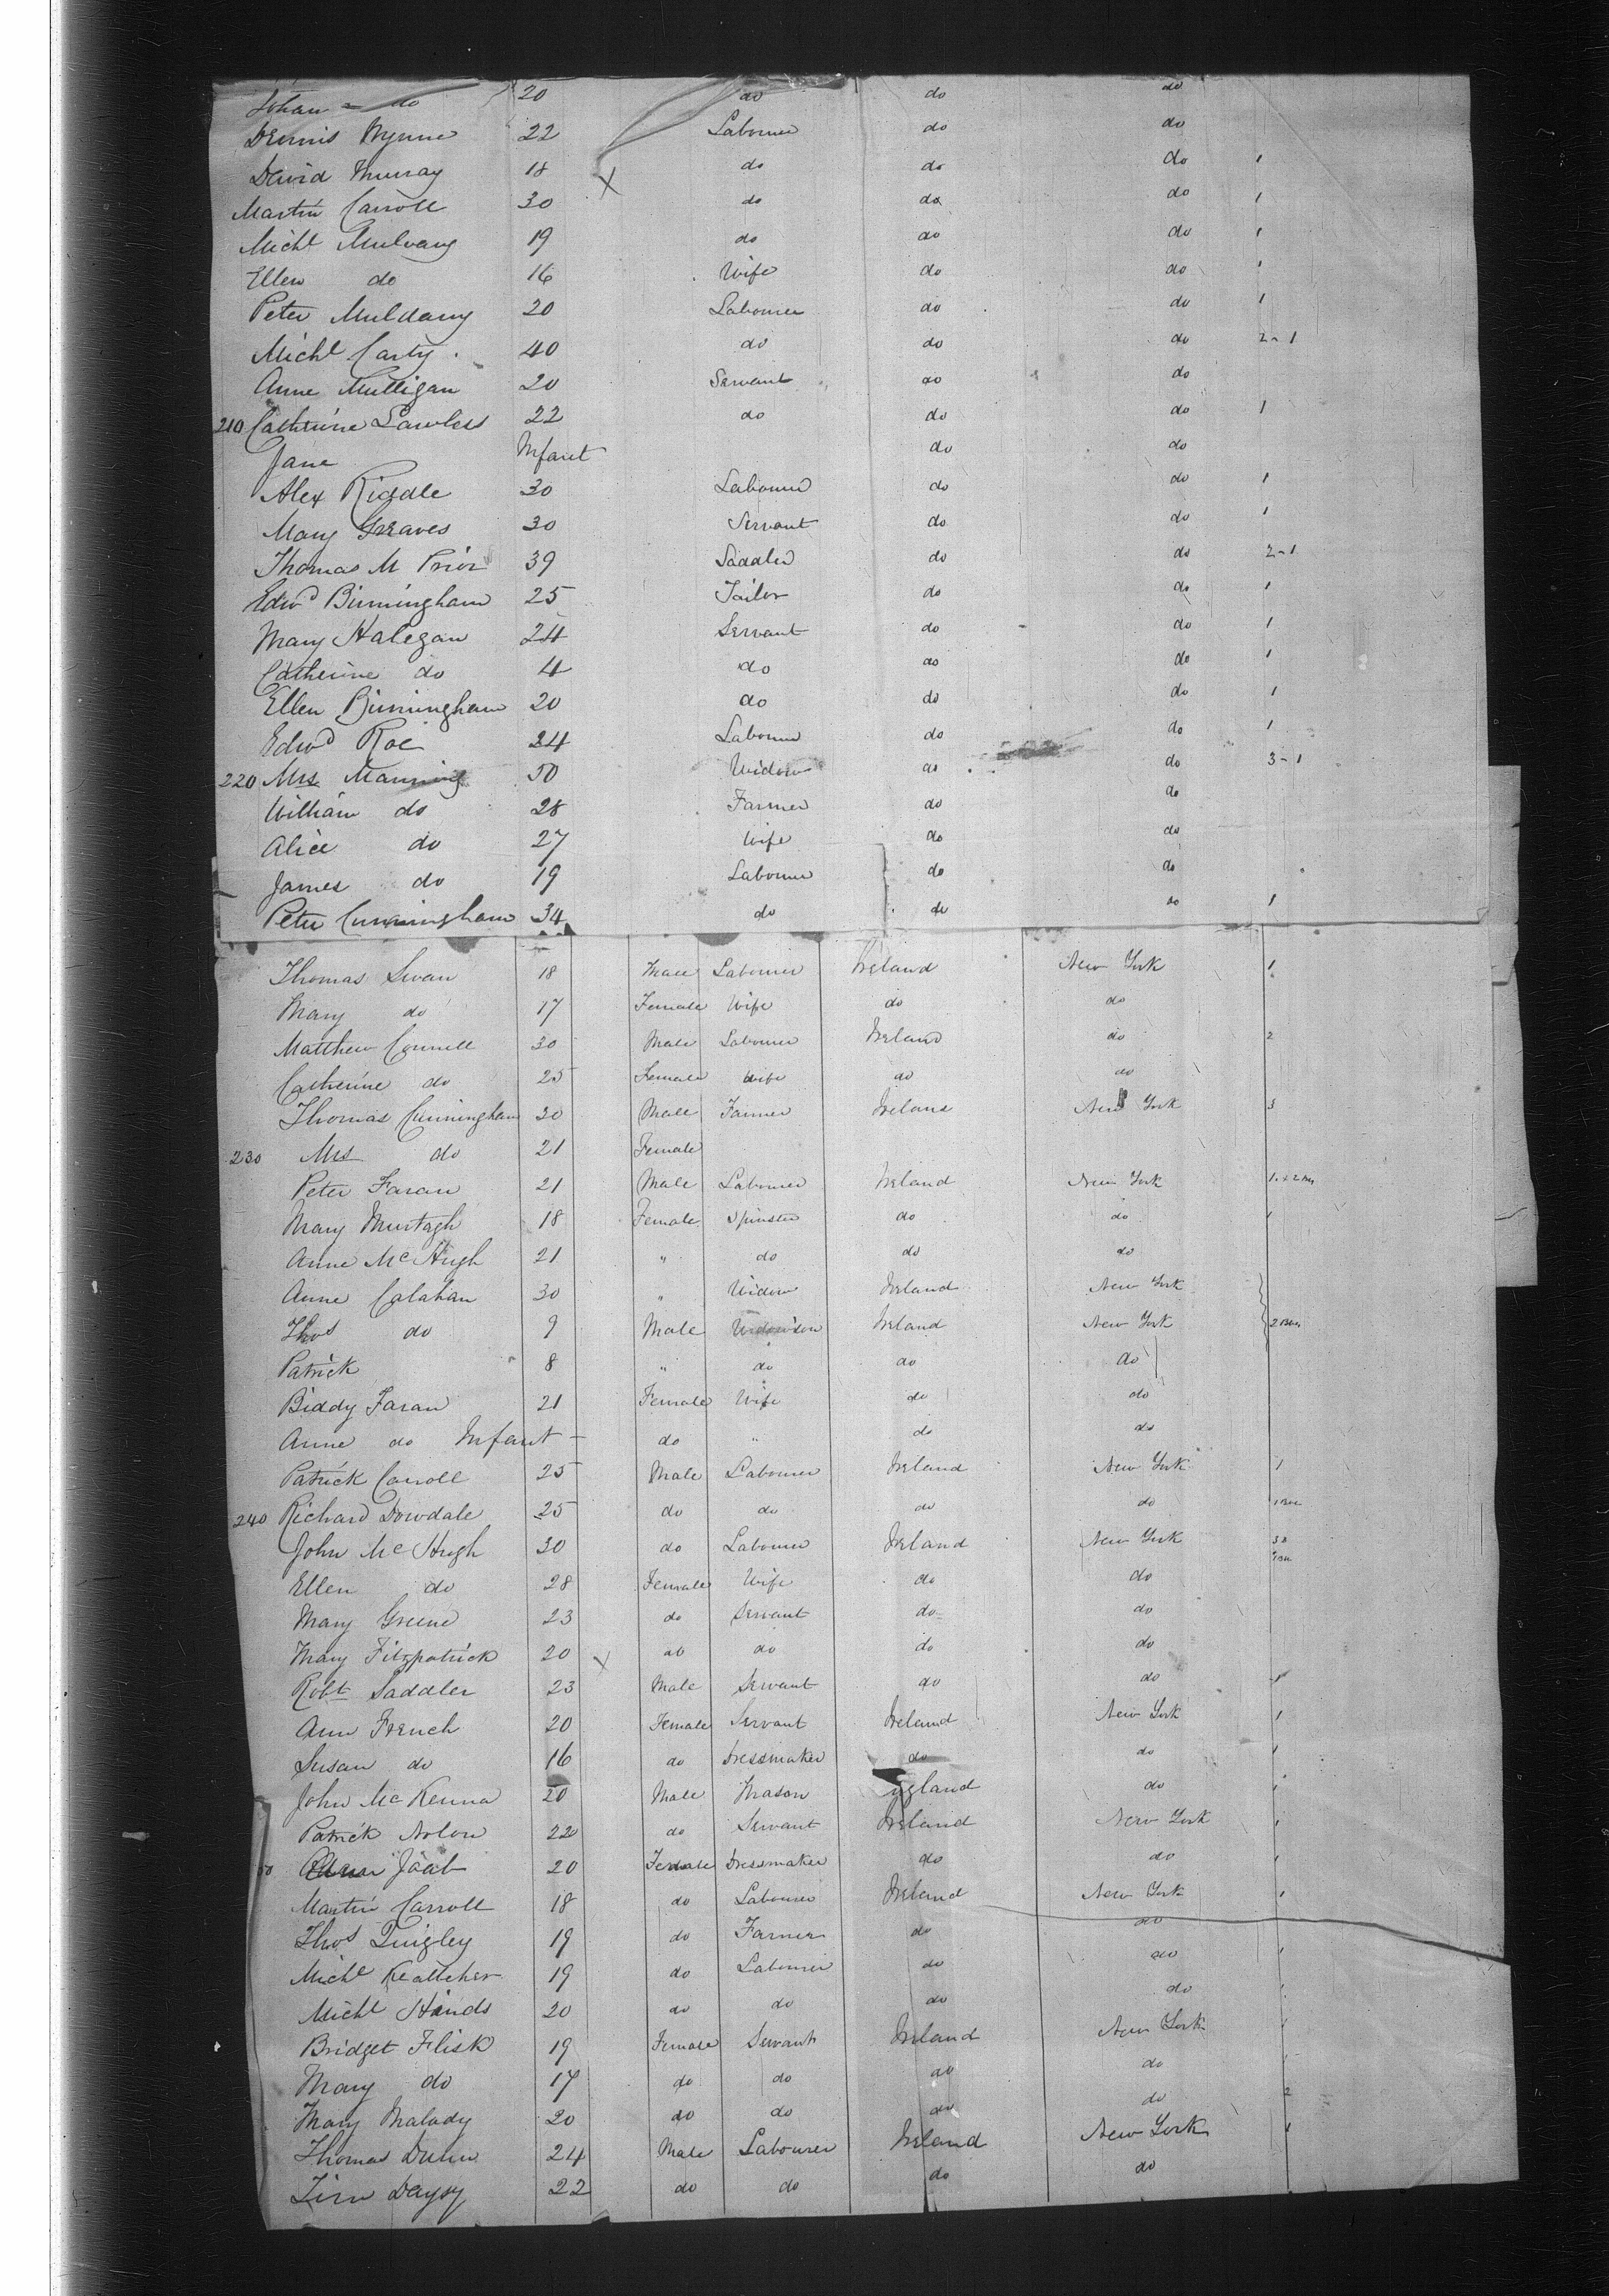 Johan = do 20 do do do
Dennis Wynne 22 Labourer do do
David Murray 18 X do do do 1
Martin Carroll 30 do do do 1
Michl Mulvany 19 do do do 1
Ellen do 16 Wife do do 1
Peter Muldany 20 Labourer do do 1
Michl Carty 40 do do do 2-1
Anne Mulligan 20 Servant do do
210 Catherine Lawless 22 do do do 1
Jane Infant do do
Alex Riddle 30 Labourer do do 1
Mary Greaves 30 Servant do do 1
Thomas M Prior 39 Saddler do do 2-1
Edwd Birmingham 25 Tailor do do 1
Mary Halegan 24 Servant do do 1
Catherine do 4 do do do 1
Ellen Birmingham 20 do do do 1
Edwd Roe 24 Labourer do do 1
220 Mrs Manning 50 Widow do do 3-1
William do 28 Farmer do do
Alice do 27 Wife do do
James do 19 Labourer do do
Peter Cunningham 34 do do do 1
Thomas Swan 18 Male Labourer Ireland New York 1
Mary do 17 Female Wife do do
Matthew Connell 30 Male Labourer Ireland do 2
Catherine do 25 Female Wife do do
Thomas Cunningham 30 Male Farmer Ireland New York 3
230 Mrs do 21 Female
Peter Faran 21 Male Labourer Ireland New York
Mary Murtagh 18 Female Spinster do do 1
Anne McHugh 21 " do do do
Anne Calahan 30 " Widow Ireland New York
Thos do 9 Male Ireland New York 2
Patrick 8 " do do do
Biddy Faran 21 Female Wife do do
Anne do Infant - do " do do
Patrick Carroll 25 Male Labourer Ireland New York 1
240 Richard Dowdale 25 do do do do 1
John McHugh 30 do Labourer Ireland New York
Ellen do 28 Female Wife do do
Mary Greene 23 do Servant do do
Mary Fitzpatrick 20 X do do do do
Robt Saddler 23 Male Servant do do 1
Ann French 20 Female Servant Ireland New York 1
Susan do 16 do Dressmaker do do 1
John McKenna 20 Male Mason gland do 1
Patrick Nolan 22 do Servant Ireland New York 1
20 Female Dressmaker do do 1
Martin Carroll 18 do Labourer Ireland New York 1
Thos Quigley 19 do Farmer do do
Michl Kealleher 19 do Labourer do do 1
Michl Hands 20 do do do do 1
Bridget Flisk 19 Female Servant Ireland New York 1
Mary do 17 do do do do
Mary Malady 20 do do do do 2
Thomas Dunn 24 Male Labourer Ireland New York 1
Tim Daysy 22 do do do do